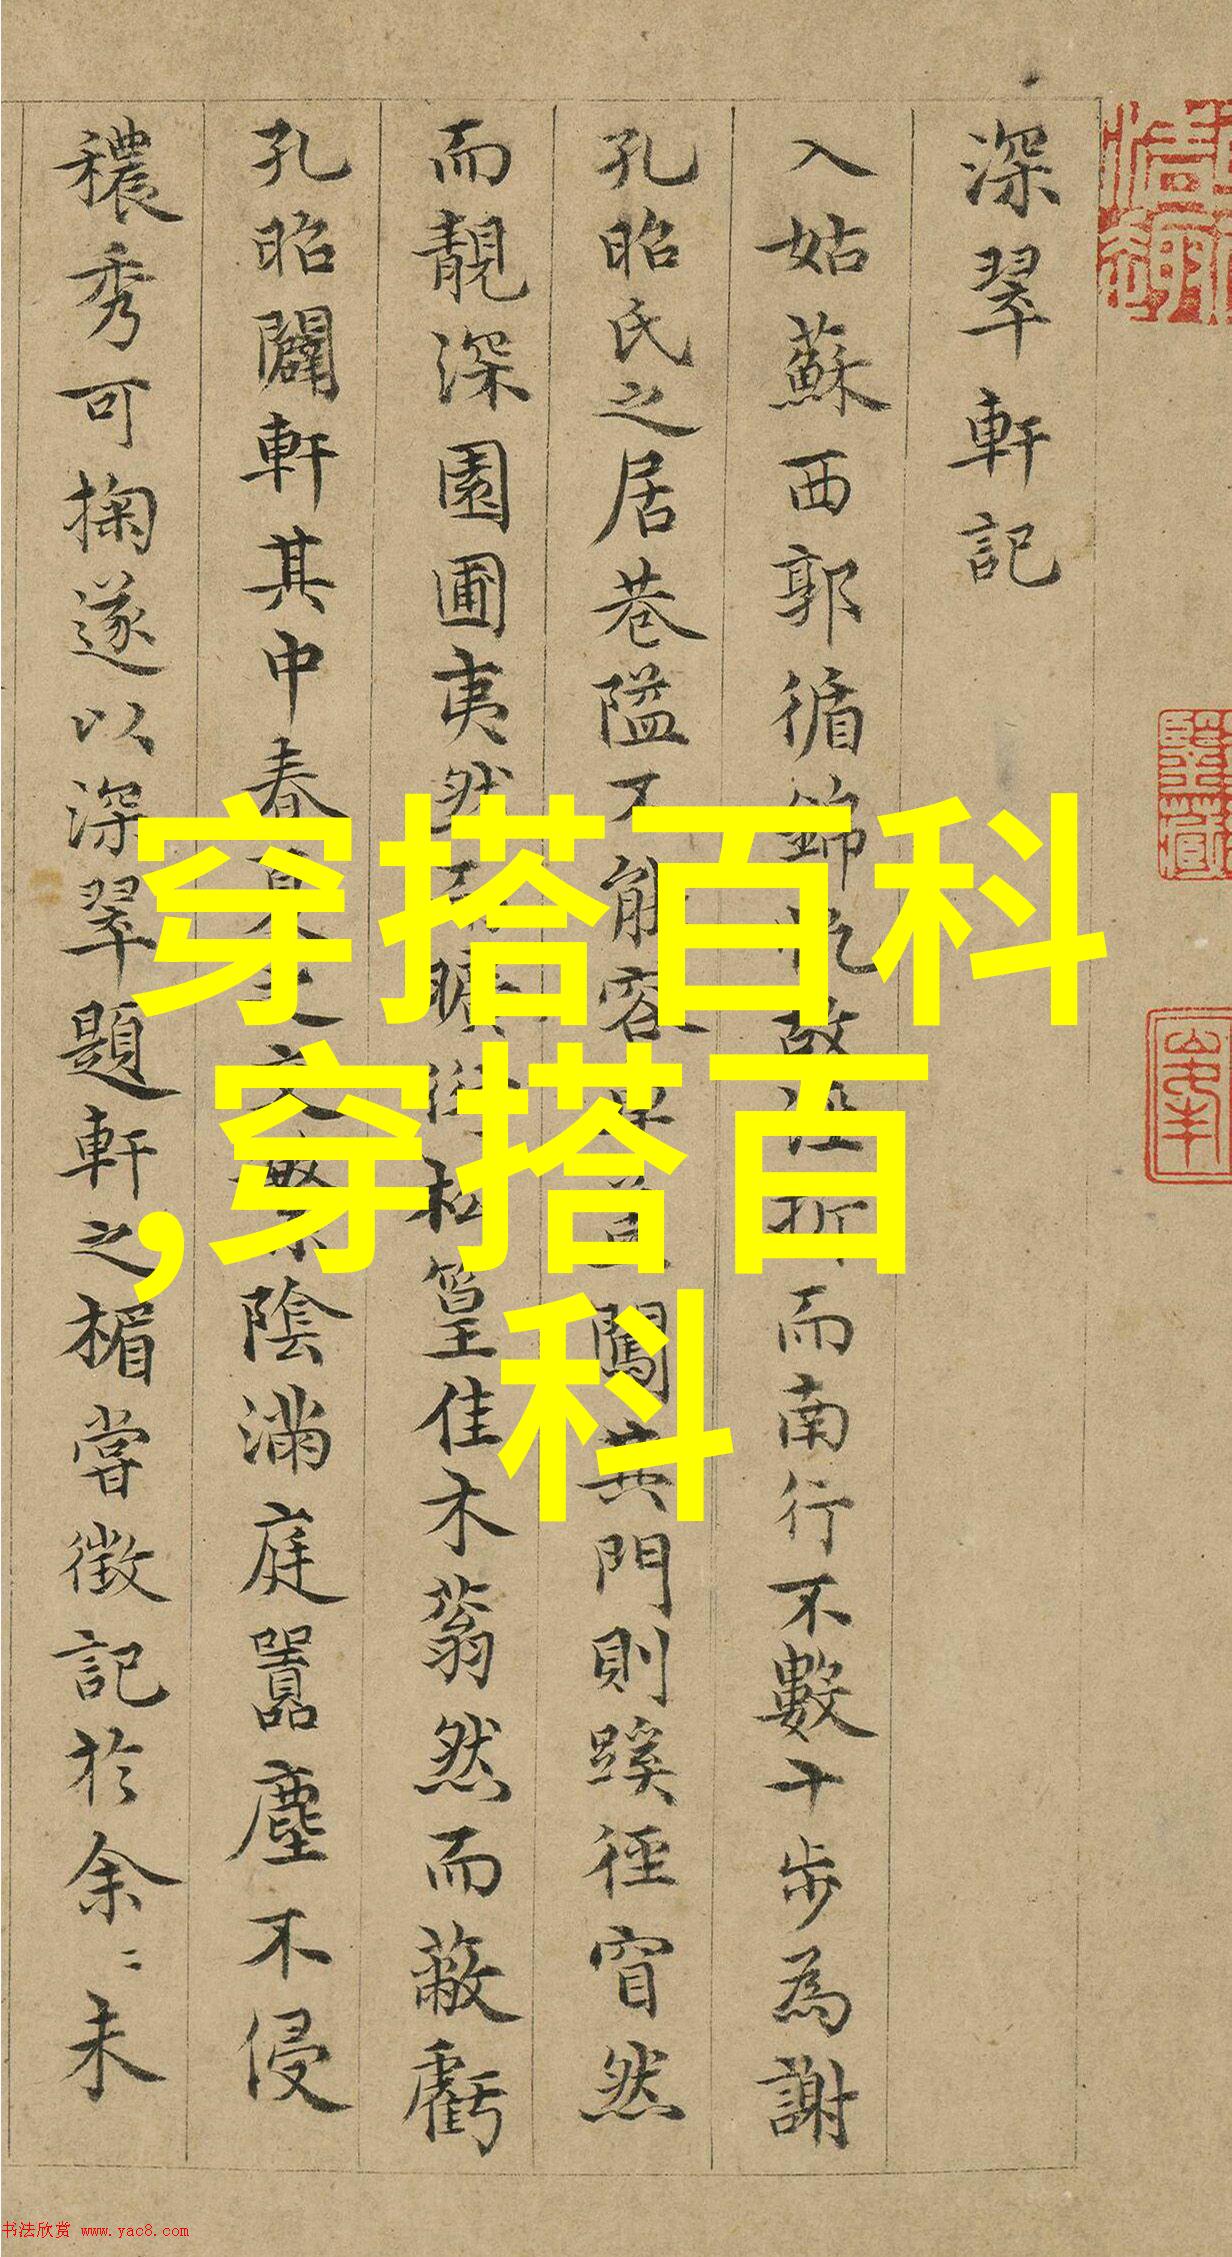 深翠軒記
入姑蘇西郭循錦帆故涇折而南行不數十步為謝
孔昭氏之居巷隘不能容車蓋闖其門則蹊徑窅然
而靚深園圃夷然
筐佳木蓊然而蔽虧
孔昭闢軒其中春夏之交繁陰滿庭囂塵不侵
穠秀可掬遂以深翠題軒之楣嘗徵記於余〻未
穿搭百科
,穿搭百
科
山本
书法欣赏 www.yac8.com